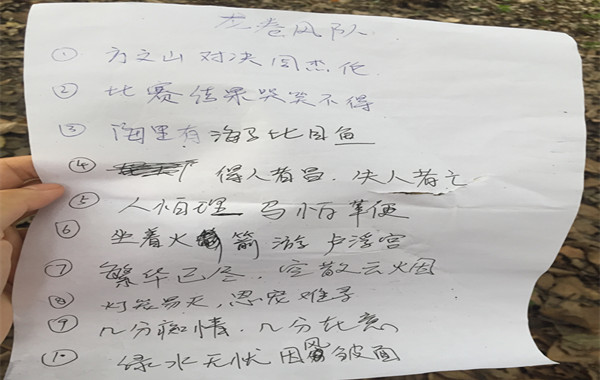 龙卷风队
① 方文山 对决 周杰伦
② 比赛结果哭笑不得
③ 海里有 海马 比目鱼
④ 得人者昌. 失人者亡
⑤ 人怕理 马怕革便
⑥ 坐着火箭 游 卢浮宫
⑦ 繁华已尽. 空散云烟
⑧ 灯花易灭, 恩宠难寻
⑨ 几分痴情. 几分在意
⑩ 绿水无忧 因风皱面